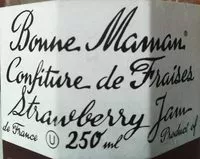 Bonne Maman®
Confiture de Fraises
Strawberry Jam
de France U 250 ml Product of